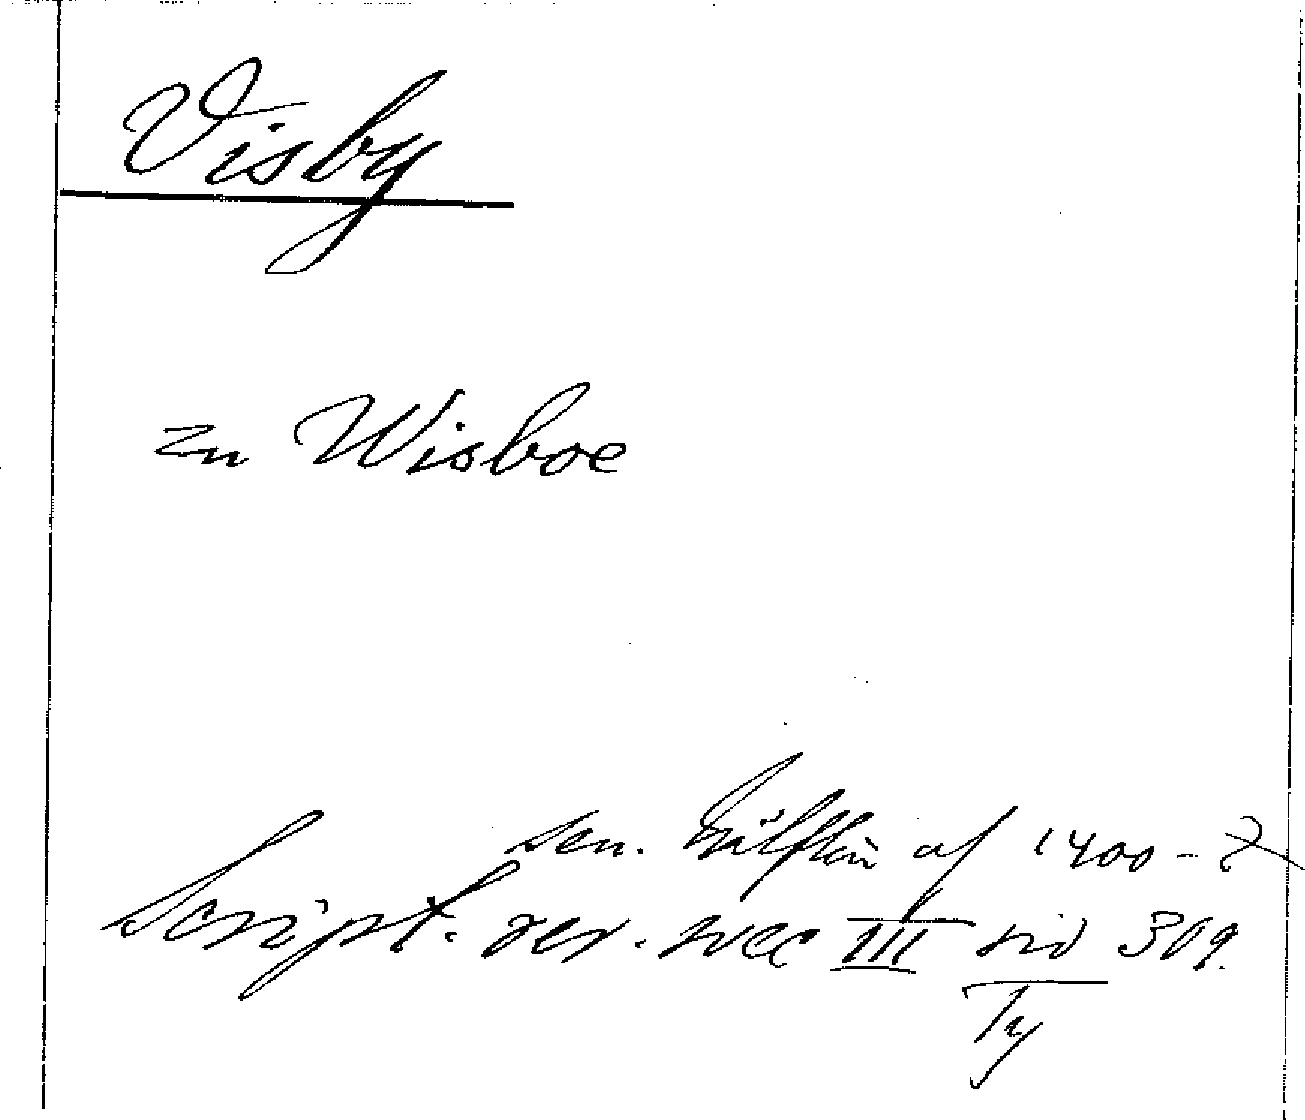 Visby
zu Wisboe
sen. hälften af 1400-t
Script. rer. svec III sid 309.
Ty